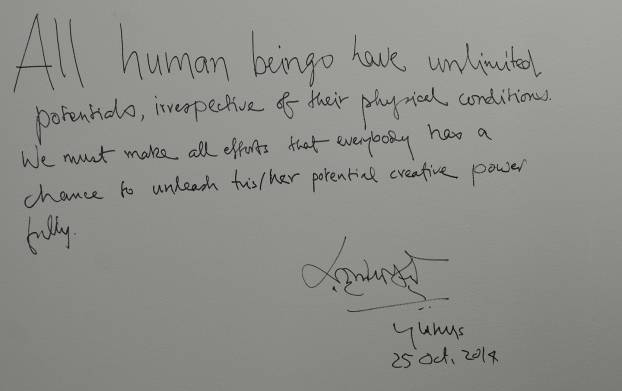 All human beings have unlimited
potentials, irrespective of their physical conditions.
We must make all efforts that everybody has a
chance to unleash his/her potential creative power
fully.
Yunus
25 Oct. 2018